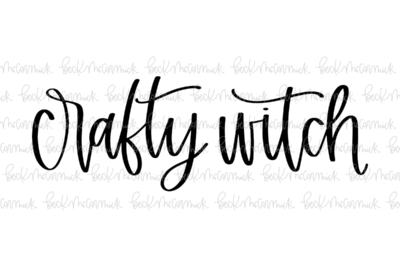 crafty witch